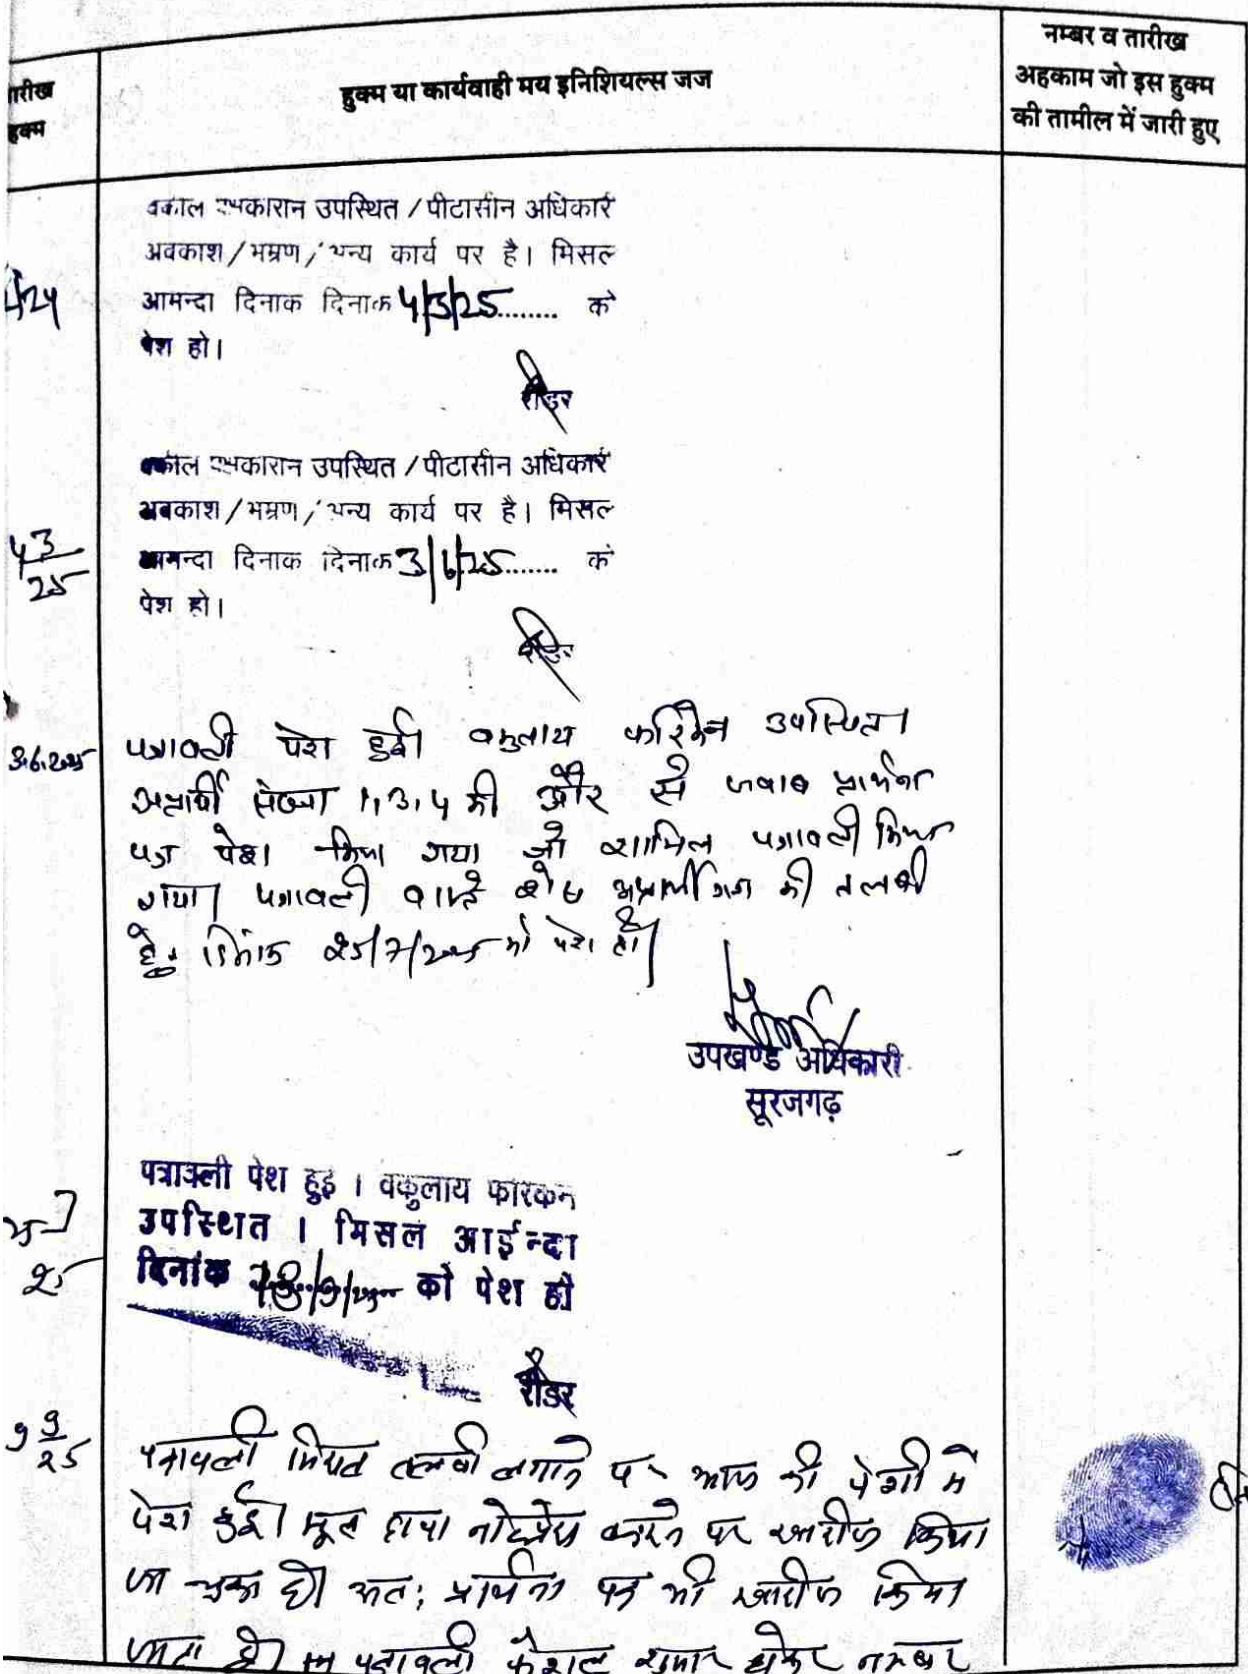 तारीख
हुक्म
हुक्म या कार्यवाही मय इनिशियल्स जज
नम्बर व तारीख
अहकाम जो इस हुक्म
की तामील में जारी हुए
उपस्थित / पीटासीन अधिकारी
अवकाश/भम्रण/अन्य कार्य पर है। मिसल
आमन्दा दिनाक दिनाक 4/3/25........ को
पेश हो।
रीडर
उपस्थित / पीटासीन अधिकारी
अवकाश/भम्रण/अन्य कार्य पर है। मिसल
4/3/25
आमन्दा दिनाक दिनाक 3/6/25....... को
पेश हो।
रीडर
3.6.2025
पत्रावली पेश हुई। वकुलाय फरिकेन उपस्थित।
अप्रार्थी संख्या 1,3,4 की और से जवाब प्रार्थना
पत्र पेश किया गया जो शामिल पत्रावली किया
गया। पत्रावली वास्ते शेष अप्रार्थीगण की तलबी
हेतु दिनांक 25/7/2025 को पेश हो।
उपखण्ड अधिकारी
सूरजगढ़
पत्रावली पेश हुइ । वकुलाय फारकेन
उपस्थित । मिसल आईन्दा
दिनांक को पेश हो
रीडर
पत्रावली तलबी लगाने पर आज की पेशी में
पेश हुई। मूल दावा नोटप्रेस करने पर खारीज किया
जा चुका है। अत: प्रार्थना पत्र भी खारीज किया
जाता है। पत्रावली फैशल शुमार होकर नम्बर